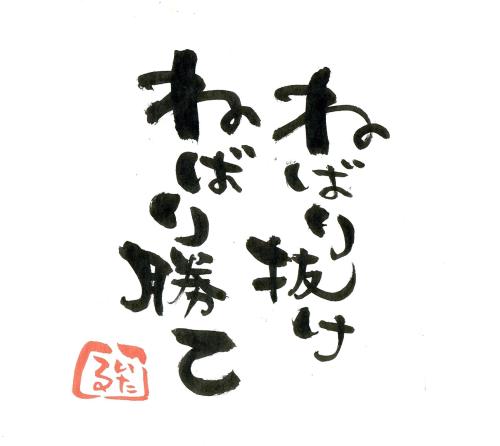 ねばり抜け
ねばり勝て
いたる